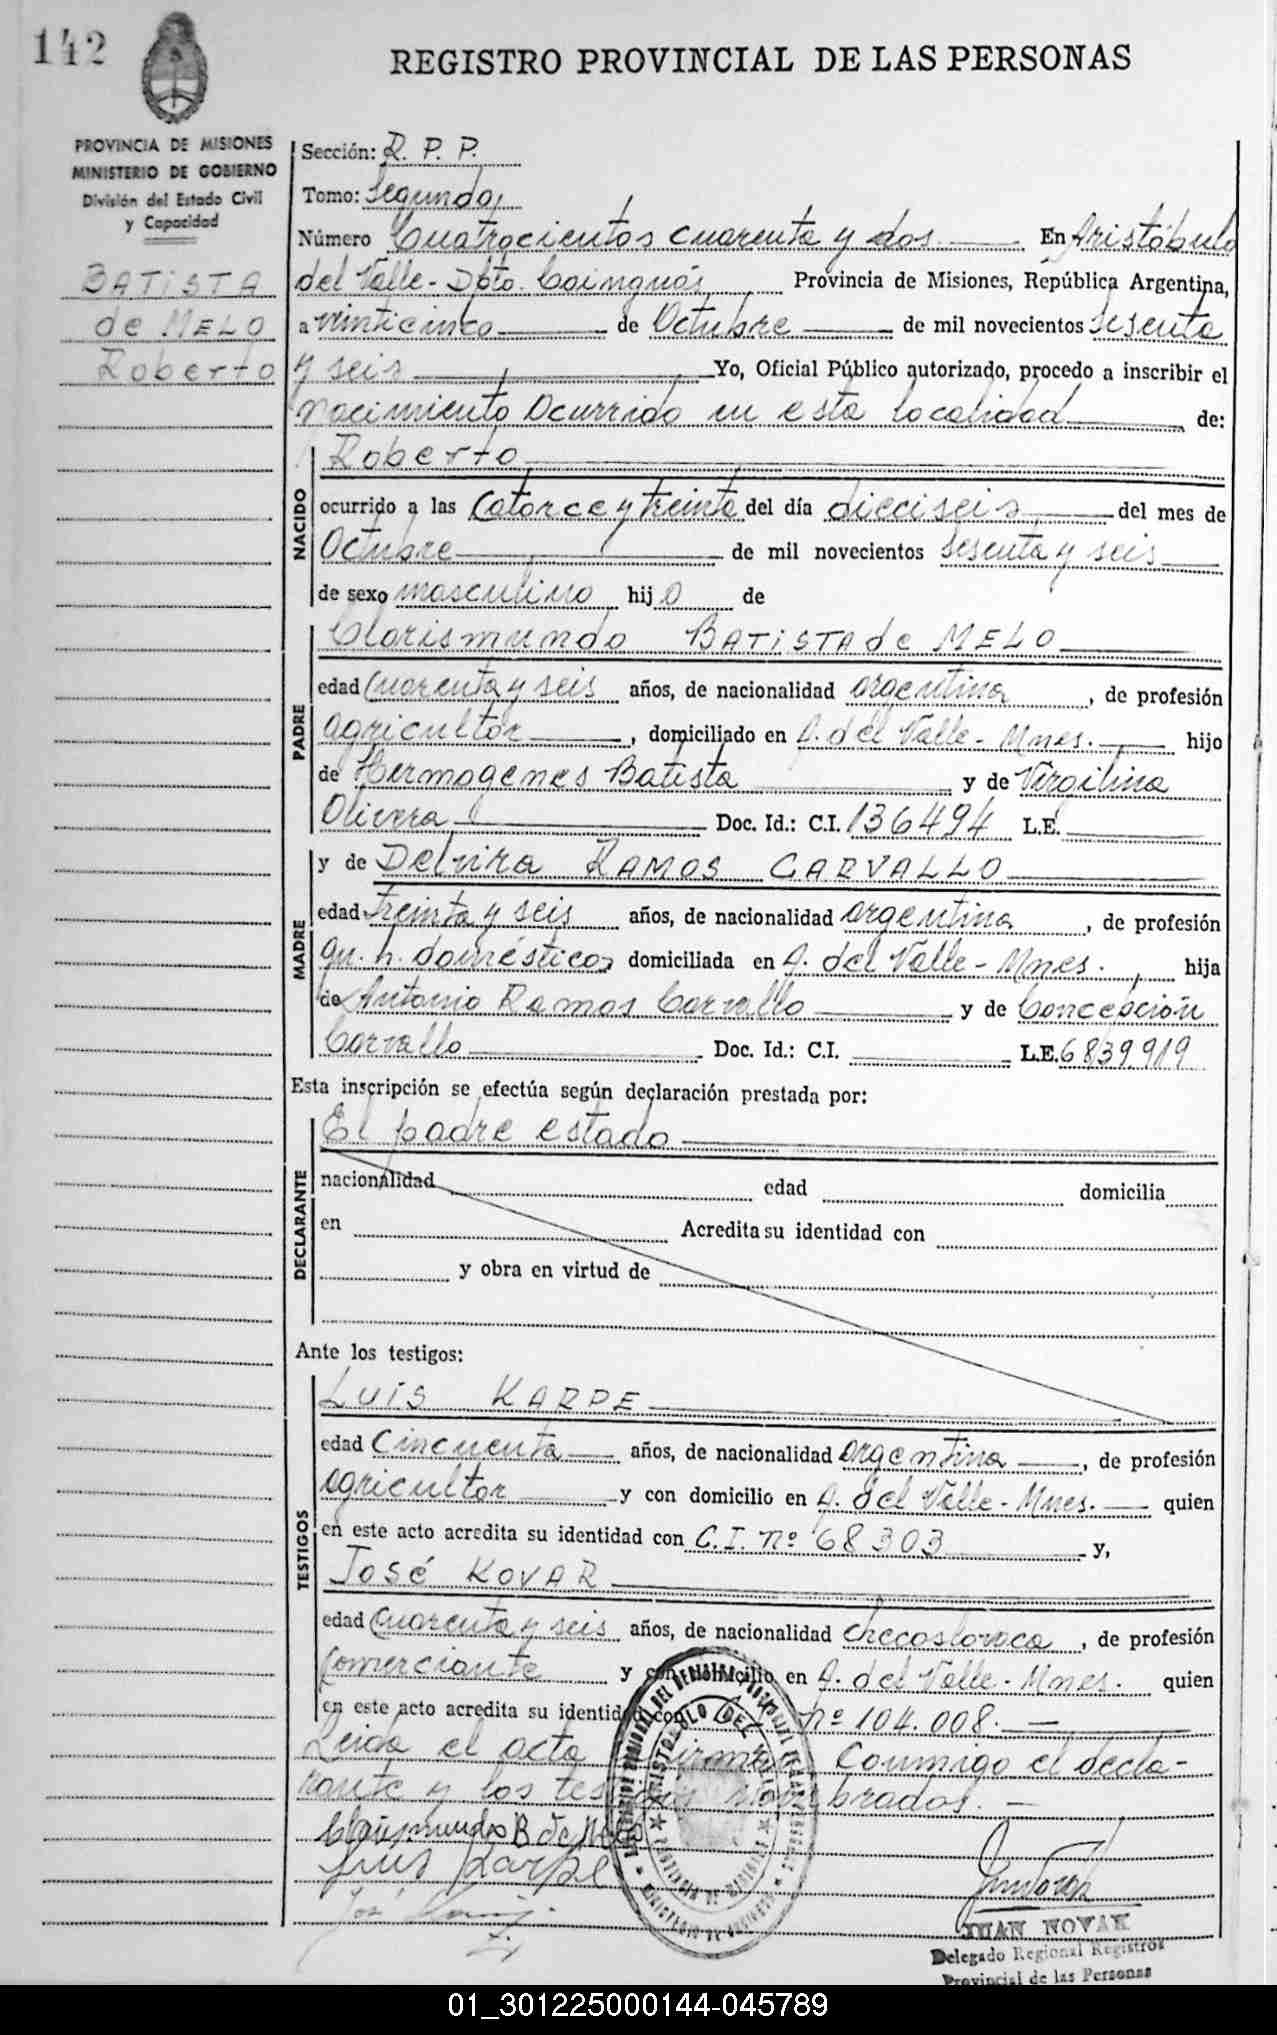 142
REGISTRO PROVINCIAL DE LAS PERSONAS
PROVINCIA DE MISIONES
MINISTERIO DE GOBIERNO
División del Estado Civil
y Capacidad
BATISTA
de MELO
Roberto
Sección: R. P. P.
Tomo: Segundo
Número Cuatrocientos cuarenta y dos. En Aristóbulo
del Valle - Dpto. Cainguás Provincia de Misiones, República Argentina,
a veinticinco de Octubre de mil novecientos sesenta
y seis Yo, Oficial Público autorizado, procedo a inscribir el
nacimiento Ocurrido en esta localidad de:
NACIDO
Roberto
ocurrido a las Catorce y treinta del día dieciseis del mes de
Octubre de mil novecientos sesenta y seis
de sexo masculino hijo de
PADRE
Clarismundo BATISTA de MELO
edad Cuarenta y seis años, de nacionalidad argentina, de profesión
agricultor, domiciliado en A. del Valle - Mnes. hijo
de Hermogenes Batista y de Virgilina
Olivera Doc. Id.: C.I. 136494 L.E.
MADRE
y de Delvira RAMOS CARVALLO
edad Treinta y seis años, de nacionalidad argentina, de profesión
qu. h. domésticos domiciliada en A. del Valle - Mnes. hija
de Antonio Ramos Carvallo y de Concepción
Carvallo Doc. Id.: C.I. L.E. 6839919
Esta inscripción se efectúa según declaración prestada por:
DECLARANTE
El padre estado
nacionalidad edad domicilia
en Acredita su identidad con
y obra en virtud de
Ante los testigos:
TESTIGOS
LUIS KARPE
edad Cincuenta años, de nacionalidad argentina, de profesión
agricultor y con domicilio en A. del Valle - Mnes. quien
en este acto acredita su identidad con C.I. nº 68303 y,
José KOVAR
edad Cuarenta y seis años, de nacionalidad checoslovaca, de profesión
Comerciante y con domicilio en A. del Valle - Mnes. quien
en este acto acredita su identidad con nº 104.008.
Leida el acta Conmigo el decla-
rante y los testigos nombrados.
Clarismundo B de Melo
Luis Karpe
José
ARISTOBULO DEL VALLE
PROVINCIA DE MISIONES
MINISTERIO DE GOBIERNO
JUAN NOVAK
Delegado Regional Registros
Provincial de las Personas
01_301225000144-045789